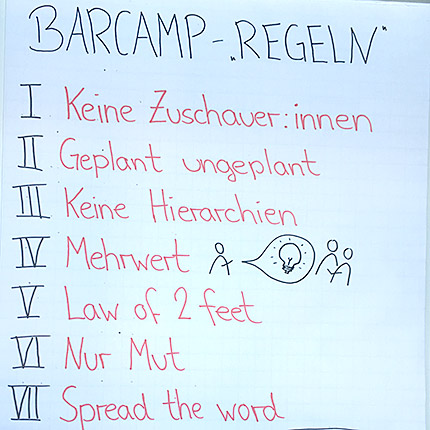 BARCAMP-„REGELN“
I Keine Zuschauer:innen
II Geplant ungeplant
III Keine Hierarchien
IV Mehrwert
V Law of 2 feet
VI Nur Mut
VII Spread the word